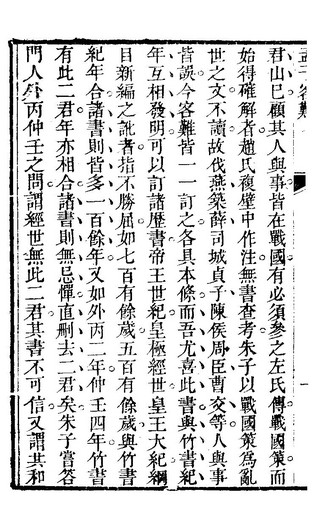 君山已顧其人與事皆在戰國有必須參之左氏傳戰國策而
始得確解者趙氏複壁中作注無書查考朱子以戰國策爲亂
世之文不讀故伐燕築薛司城貞子陳侯周臣曹交等人與事
皆誤今客難皆一一訂之各具本條而吾尤喜此書與竹書紀
年互相發明可以訂諸歷書帝王世紀皇極經世皇王大紀綱
目新編之訛者指不勝屈如七百有餘歲五百有餘歲與竹書
紀年合諸書則皆多一百餘年又如外丙二年仲壬四年竹書
有此二君年亦相合諸書則無忌憚直刪去二君矣朱子嘗答
門人外丙仲壬之問謂經世無此二君其書不可信又謂其和